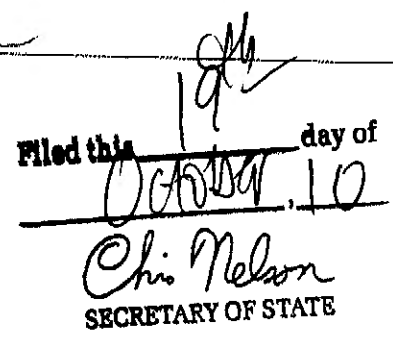 Filed this 18th day of
October, 10
Chris Nelson
SECRETARY OF STATE